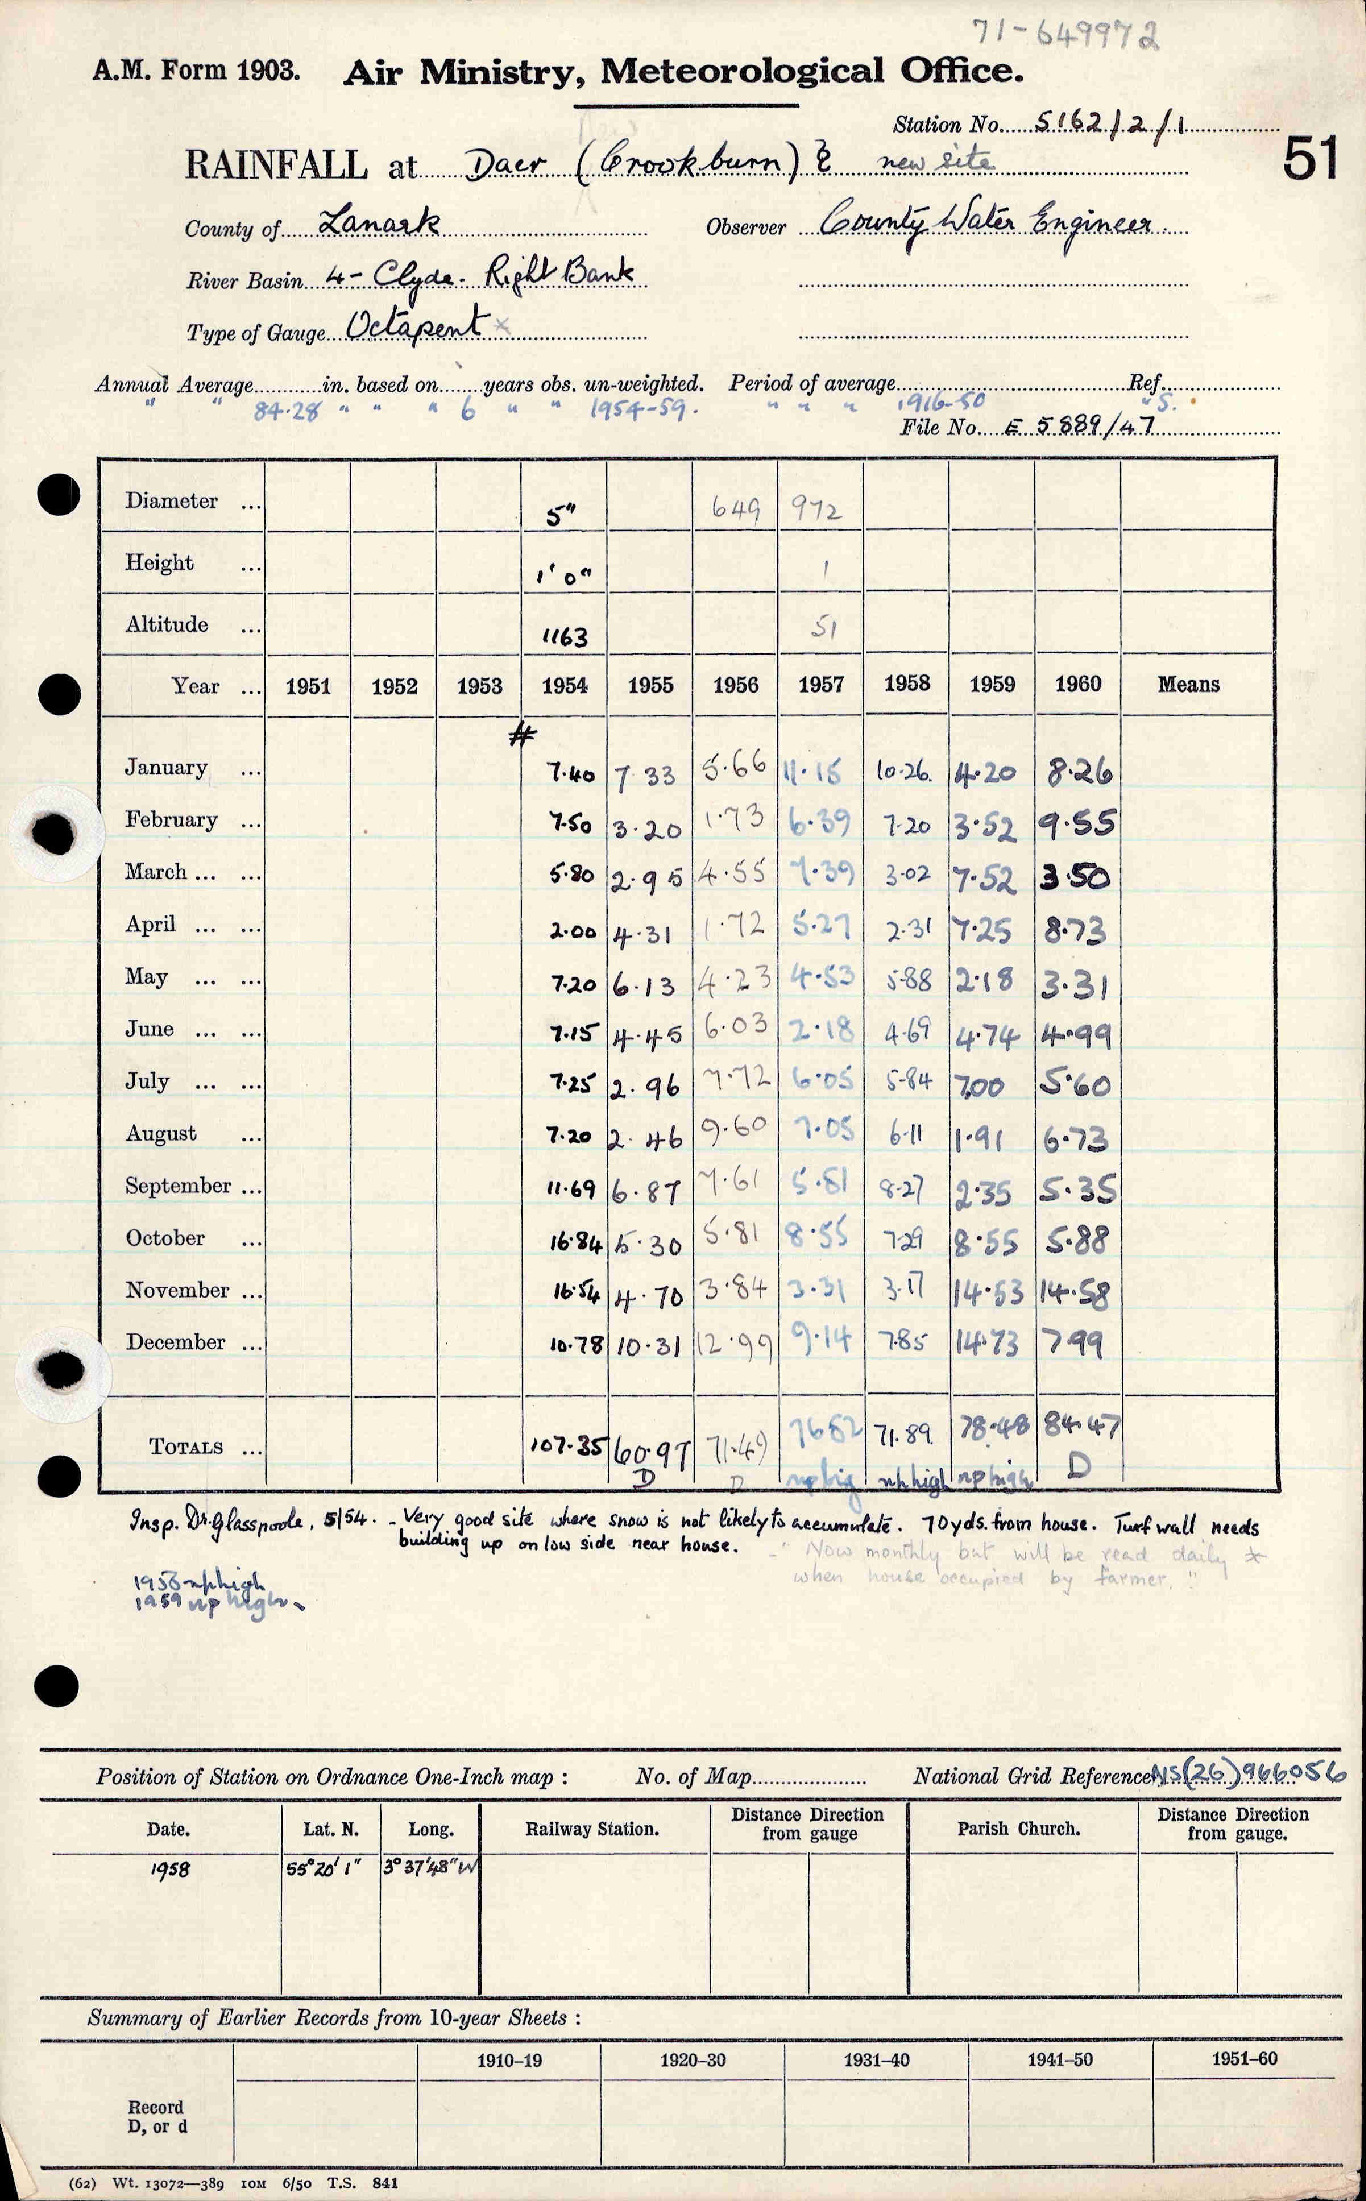 71-649972
A.M. Form 1903. Air Ministry, Meteorological Office.
Station No. 5162/2/1
51
RAINFALL at Daer (Crookburn) & new site
County of Lanark Observer County Water Engineer.
River Basin 4- Clyde. Right Bank
Type of Gauge Octapent x
Annual Average in. based on years obs. un-weighted. Period of average Ref.
" " 84.28 " " " 6 " " 1954-59. " " " 1916-50 "S.
File No. E 5889/47
Diameter ... 5" 649 972
Height ... 1' 0" 1
Altitude ... 1163 51
Year ... 1951 1952 1953 1954 1955 1956 1957 1958 1959 1960 Means
#
January ... 7.40 7 33 5.66 11.15 10.26. 4.20 8.26
February ... 7.50 3.20 1.73 6.39 7.20 3.52 9.55
March ... ... 5.80 2.95 4.55 7.39 3.02 7.52 3.50
April ... ... 2.00 4.31 1.72 5.27 2.31 7.25 8.73
May ... ... 7.20 6.13 4.23 4.53 5.88 2.18 3.31
June ... ... 7.15 4.45 6.03 2.18 4.69 4.74 4.99
July ... ... 7.25 2.96 7.72 6.05 5.84 7.00 5.60
August ... 7.20 2.46 9.60 7.05 6.11 1.91 6.73
September ... 11.69 6.87 7.61 5.81 8.27 2.35 5.35
October ... 16.84 5.30 5.81 8.55 7.29 8.55 5.88
November ... 16.54 4.70 3.84 3.31 3.17 14.53 14.58
December ... 10.78 10.31 12.99 9.14 7.85 14.73 7.99
TOTALS ... 107.35 60.97 71.49 76.82 71.89 78.48 84.47
D D np hig np high np high D
Insp. Dr. Glasspoole, 5/54. - Very good site where snow is not likely to accumulate. 70yds. from house. Turf wall needs
building up on low side near house. - " Now monthly but will be read daily *
when house occupied by farmer. "
1958 np high
1959 np high
Position of Station on Ordnance One-Inch map : No. of Map National Grid Reference NS(26)966056
Date. Lat. N. Long. Railway Station. Distance Direction from gauge Parish Church. Distance Direction from gauge.
1958 55° 20' 1" 3° 37' 48" W
Summary of Earlier Records from 10-year Sheets :
1910–19 1920–30 1931–40 1941–50 1951–60
Record
D, or d
(62) Wt. 13072—389 10M 6/50 T.S. 841